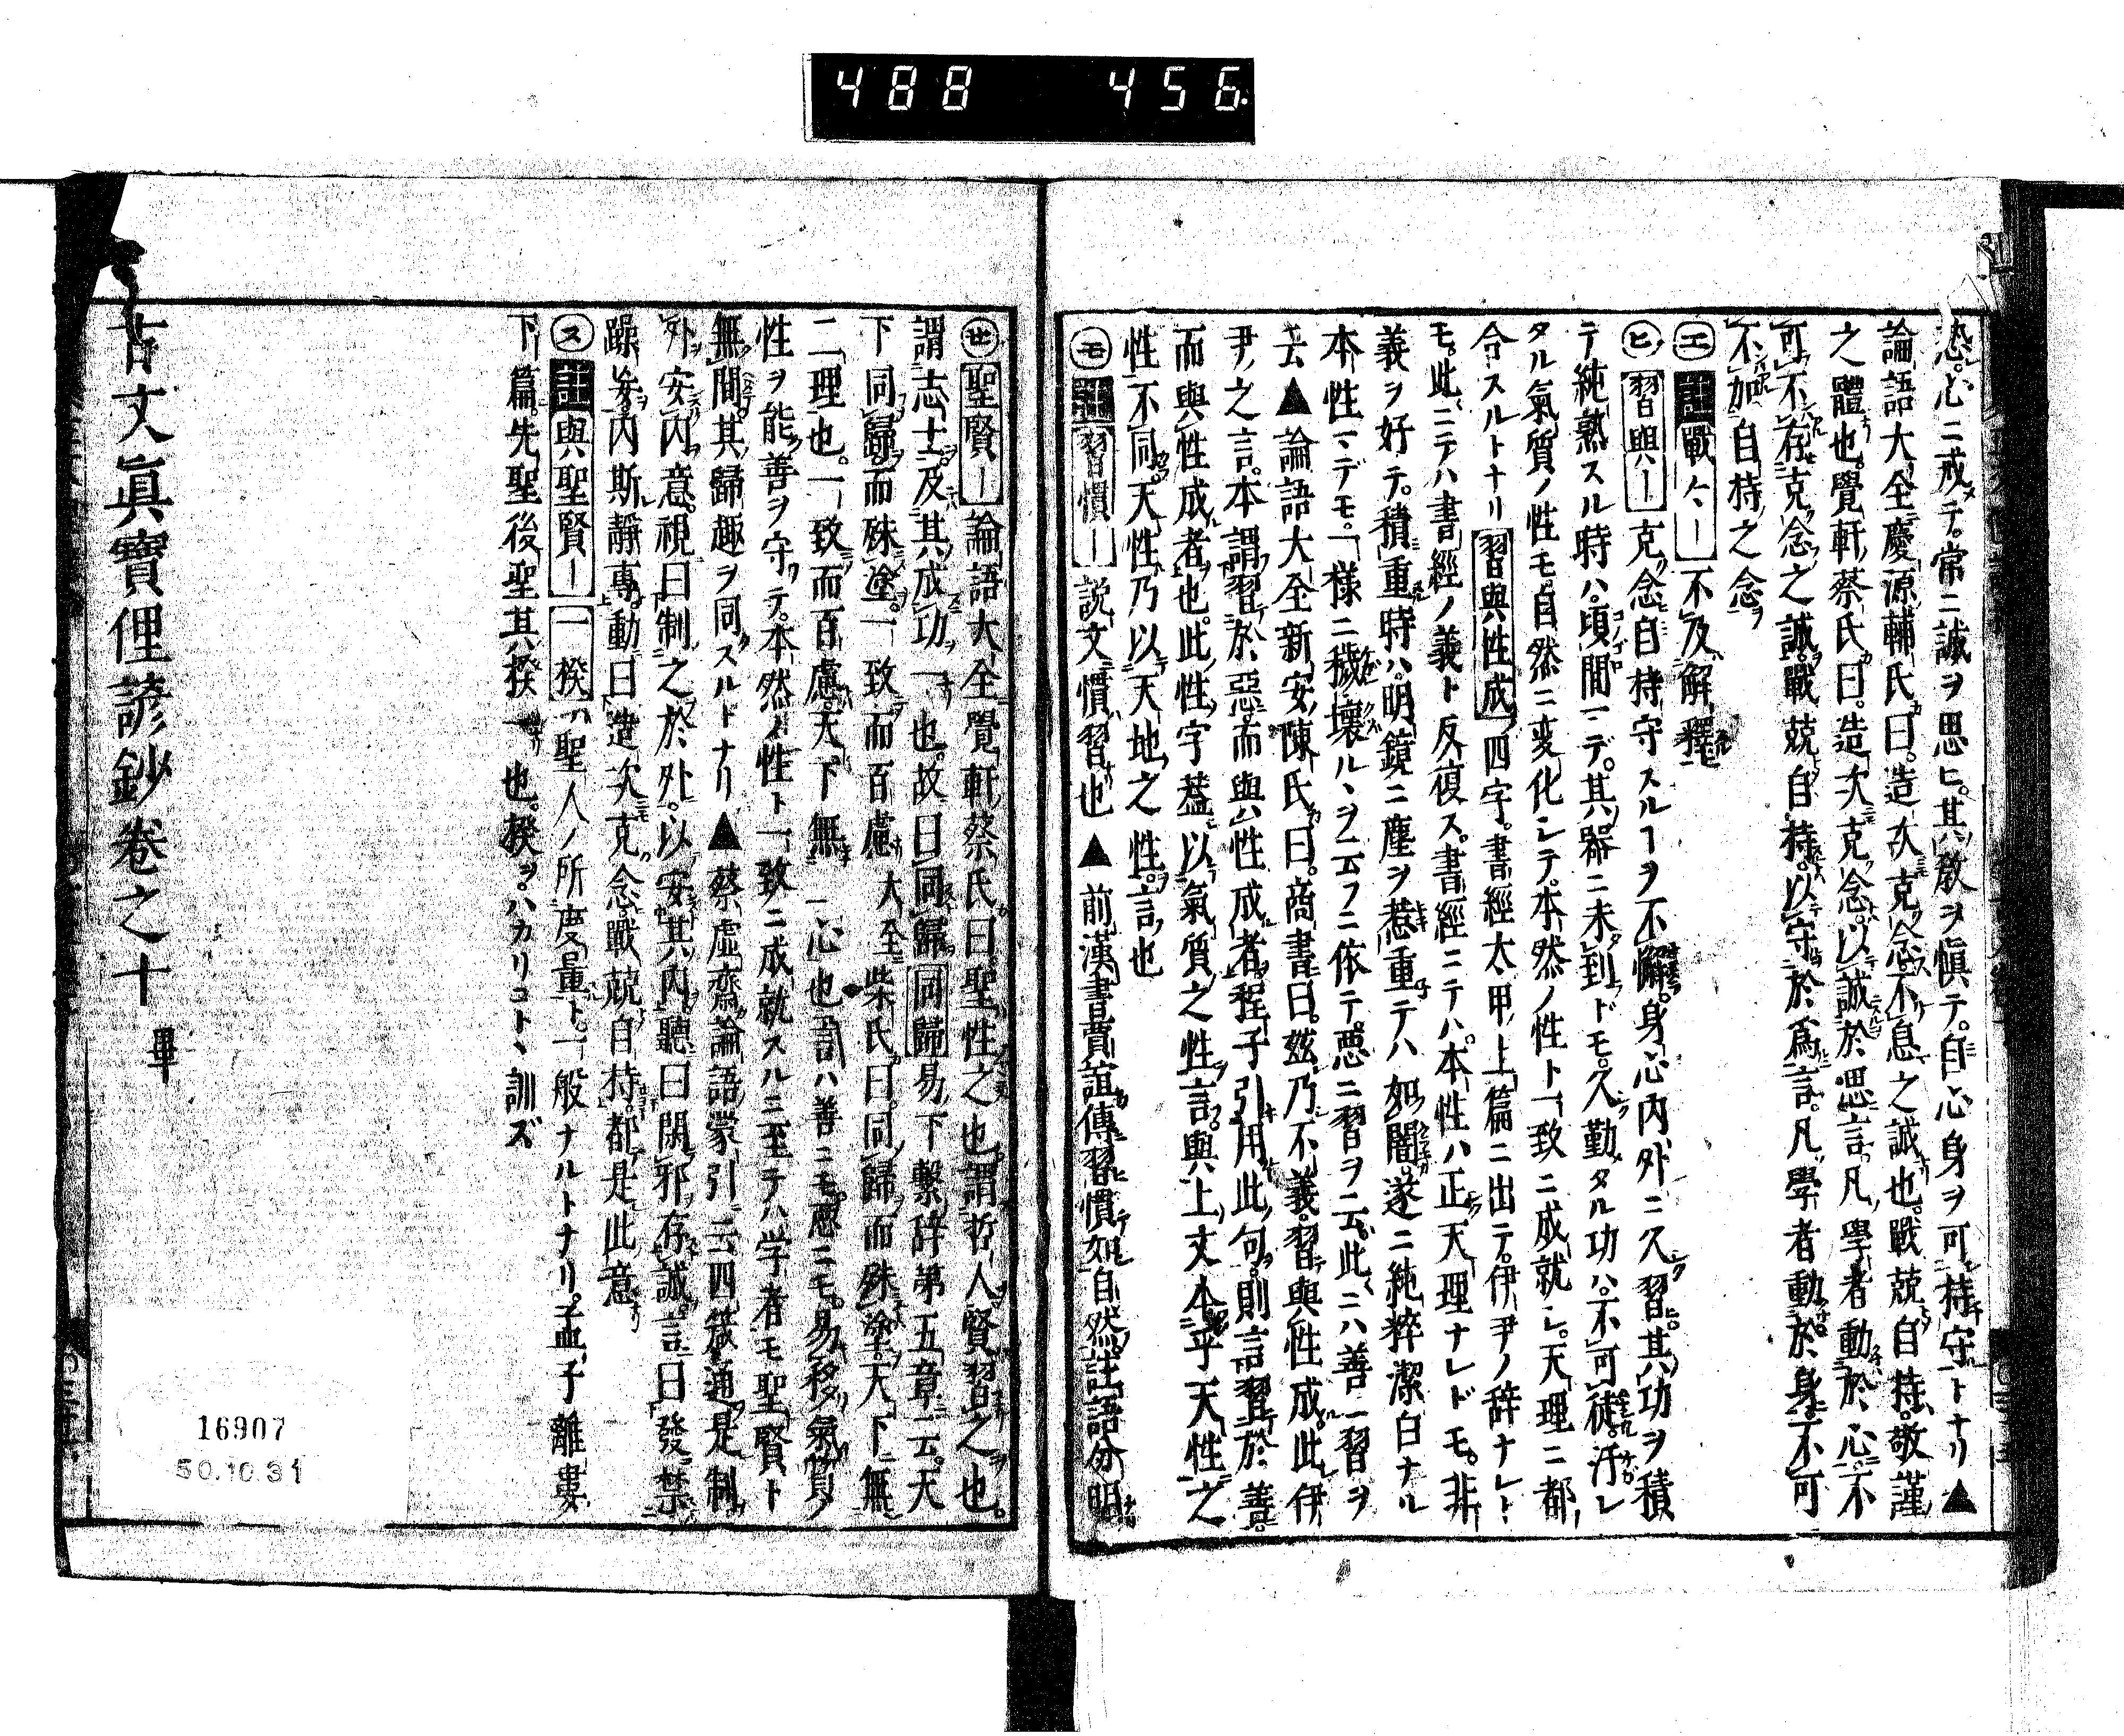 488 456
恐。心ニ戒メテ。常ニ誠ヲ思ヒ。其ノ教ヲ愼テ。自心身ヲ可持守トナリ▲
論語大全慶源輔氏曰。造次克念不息之誠也。戰兢自持。敬謹
之體也。覺軒蔡氏曰。造次克念。以誠於思言。凡學者動於心。不
可不存克念之誠。戰兢自持。以守於爲言。凡學者動於身。不可
不加自持之念
㋓註戰々〡不及解釋
㋪習與〡克念自持守スルヿヲ不懈。身心内外ニ久習。其功ヲ積
テ純熟スル時ハ。頃間ニデ。其ノ器ニ未到ドモ。久勤タル功ハ。不可徒。汚レ
タル氣質ノ性モ自然ニ変化シテ。本然ノ性ト一致ニ成就シ。天理ニ都
合スルトナリ習與性成四字。書經太甲上篇ニ出テ。伊尹ノ辞ナレト
モ。此ニテハ書經ノ義ト反復ス。書經ニテハ。本性ハ正天理ナレドモ。非
義ヲ好テ。積重時ハ。明鏡ニ塵ヲ惹重テハ如闇。遂ニ純粹潔白ナル
本性マデモ。一樣ニ穢壞ルヽヲ云フニ依テ。悪ニ習ヲ云。此ニハ善ニ習ヲ
云▲論語大全新安陳氏曰。商書曰。茲乃不義。習與性成。此伊
尹之言。本謂習於惡而與性成者。程子引用此句。則言習於善。
而與性成者也。此性字蓋以氣質之性言。與上文本乎天性之
性不同。天性乃以天地之性言也
㋲註習慣〡説文慣習也▲前漢書賈誼傳習慣如自然。註語分明
㊆聖賢〡論語大全覺軒蔡氏曰聖性之也。謂哲人賢習之也。
謂志士。及其成功一也。故曰同歸同歸易下繫辞第五章云。天
下同歸。而殊塗。一致而百慮大全柴氏曰。同歸而殊塗。天下無
二理也。一致而百慮。天下無一心也言ハ善ニモ。悪ニモ。易移氣質ノ
性ヲ能善ヲ守テ。本然ノ性ト一致ニ成就スルニ至テハ学者モ聖賢ト
無間。其歸趣ヲ同スルトナリ▲蔡虛齋論語蒙引云四箴通是制
外安内意。視曰制之於外。以安其内。聽曰閑邪存誠。言曰發禁
躁妄。内斯靜專。動曰造次克念。戰兢自持。都是此意
㋜註與聖賢〡一揆聖人ノ所度量ト。一般ナルトナリ。孟子離婁
下篇。先聖後聖其揆一也。揆ヲ。ハカリコトヽ訓ズ
古文眞寶俚諺鈔卷之十 畢
16907
50.10.31